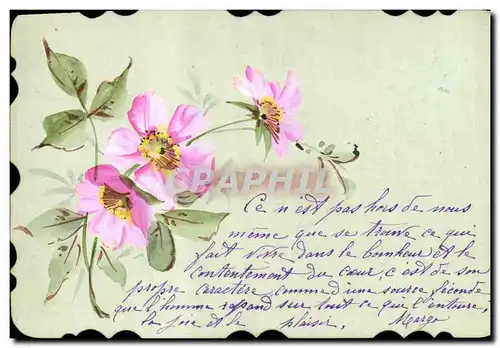 CPAPHIL
Ce n'est pas hors de nous
même que se trouve ce qui
fait vivre dans le bonheur et le
contentement du cœur, c'est de son
propre caractère comme d'une source féconde
que l'homme répand sur tout ce qui l'entoure,
la joie et le plaisir. Marge